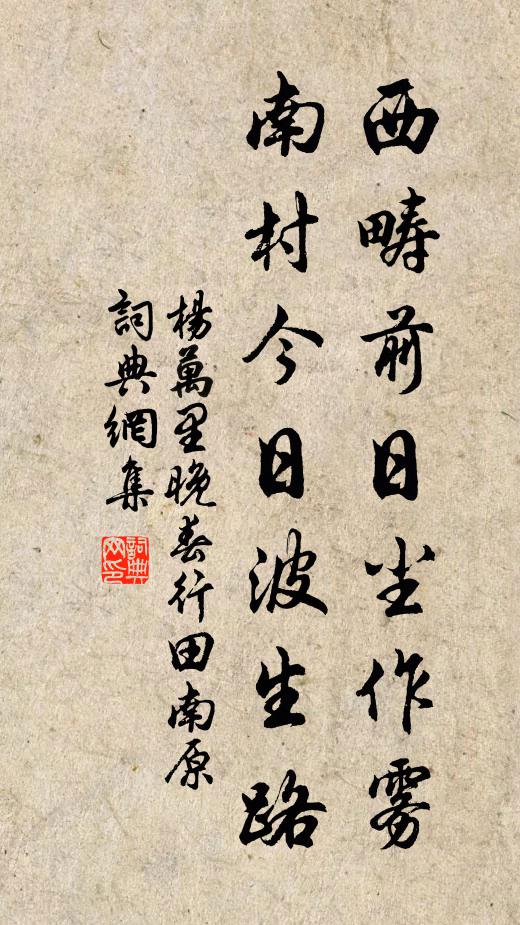 西疇前日尘作雾
南村今日波生路
楊萬里晚春行田南原
詞典網集
詞典网印